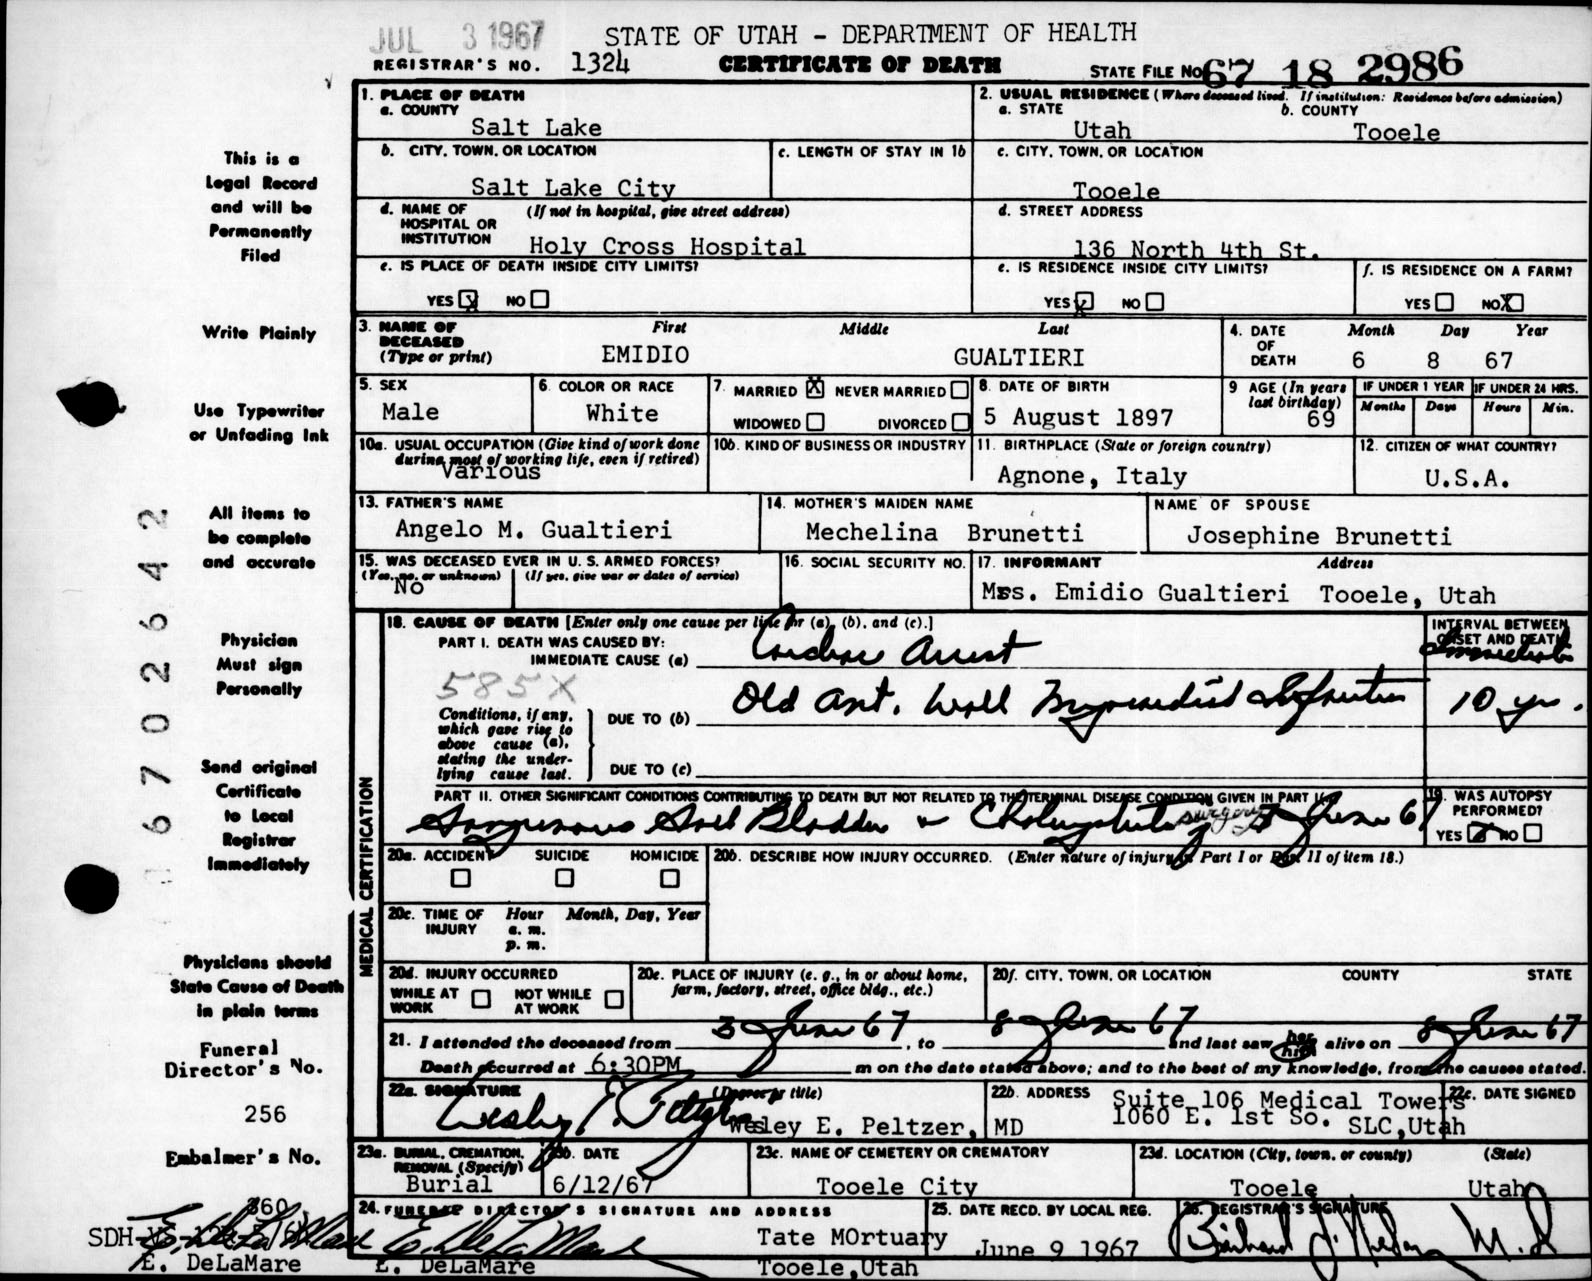 JUL 3 1967
STATE OF UTAH - DEPARTMENT OF HEALTH
REGISTRAR'S NO. 1324 CERTIFICATE OF DEATH STATE FILE NO 67 18 2986
1. PLACE OF DEATH
a. COUNTY
Salt Lake
2. USUAL RESIDENCE (Where deceased lived. If institution: Residence before admission)
a. STATE b. COUNTY
Utah Tooele
b. CITY, TOWN, OR LOCATION c. LENGTH OF STAY IN 1b
Salt Lake City
c. CITY, TOWN, OR LOCATION
Tooele
d. NAME OF HOSPITAL OR INSTITUTION (If not in hospital, give street address)
Holy Cross Hospital
d. STREET ADDRESS
136 North 4th St.
e. IS PLACE OF DEATH INSIDE CITY LIMITS?
YES X NO
e. IS RESIDENCE INSIDE CITY LIMITS?
YES X NO
f. IS RESIDENCE ON A FARM?
YES NO X
3. NAME OF DECEASED (Type or print) First Middle Last
EMIDIO GUALTIERI
4. DATE OF DEATH Month Day Year
6 8 67
5. SEX
Male
6. COLOR OR RACE
White
7. MARRIED X NEVER MARRIED
WIDOWED DIVORCED
8. DATE OF BIRTH
5 August 1897
9 AGE (In years last birthday)
69
IF UNDER 1 YEAR IF UNDER 24 HRS.
Months Days Hours Min.
10a. USUAL OCCUPATION (Give kind of work done during most of working life, even if retired)
Various
10b. KIND OF BUSINESS OR INDUSTRY
11. BIRTHPLACE (State or foreign country)
Agnone, Italy
12. CITIZEN OF WHAT COUNTRY?
U.S.A.
13. FATHER'S NAME
Angelo M. Gualtieri
14. MOTHER'S MAIDEN NAME
Mechelina Brunetti
NAME OF SPOUSE
Josephine Brunetti
15. WAS DECEASED EVER IN U. S. ARMED FORCES?
(Yes, no, or unknown) (If yes, give war or dates of service)
No
16. SOCIAL SECURITY NO.
17. INFORMANT Address
Mrs. Emidio Gualtieri Tooele, Utah
18. CAUSE OF DEATH [Enter only one cause per line for (a), (b), and (c).]
PART I. DEATH WAS CAUSED BY:
IMMEDIATE CAUSE (a) Cardiac Arrest
INTERVAL BETWEEN ONSET AND DEATH
Immediate
585X
Conditions, if any, which gave rise to above cause (a), stating the underlying cause last.
DUE TO (b) Old Ant. Wall Myocardial Infarction 10 yr.
DUE TO (c)
PART II. OTHER SIGNIFICANT CONDITIONS CONTRIBUTING TO DEATH BUT NOT RELATED TO THE TERMINAL DISEASE CONDITION GIVEN IN PART I
Gangrenous Gall Bladder Surgery 3 June 67
19. WAS AUTOPSY PERFORMED?
YES X NO
MEDICAL CERTIFICATION
20a. ACCIDENT SUICIDE HOMICIDE
20b. DESCRIBE HOW INJURY OCCURRED. (Enter nature of injury in Part I or Part II of item 18.)
20c. TIME OF INJURY Hour Month, Day, Year
a. m.
p. m.
20d. INJURY OCCURRED
WHILE AT WORK NOT WHILE AT WORK
20e. PLACE OF INJURY (e. g., in or about home, farm, factory, street, office bldg., etc.)
20f. CITY, TOWN, OR LOCATION COUNTY STATE
21. I attended the deceased from 3 June 67, to 8 June 67 and last saw her him alive on 8 June 67
Death occurred at 6:30PM m on the date stated above; and to the best of my knowledge, from the causes stated.
22a. SIGNATURE (Degree or title)
Wesley E. Peltzer, MD
22b. ADDRESS
Suite 106 Medical Towers
1060 E. 1st So. SLC,Utah
22c. DATE SIGNED
23a. BURIAL, CREMATION, REMOVAL (Specify)
Burial
23b. DATE
6/12/67
23c. NAME OF CEMETERY OR CREMATORY
Tooele City
23d. LOCATION (City, town, or county) (State)
Tooele Utah
24. FUNERAL DIRECTOR'S SIGNATURE AND ADDRESS
E. DeLaMare
E. DeLaMare
Tate MOrtuary
Tooele,Utah
25. DATE RECD. BY LOCAL REG.
June 9 1967
26. REGISTRAR'S SIGNATURE
M.D
This is a
Legal Record
and will be
Permanently
Filed
Write Plainly
Use Typewriter
or Unfading Ink
All items to
be complete
and accurate
Physician
Must sign
Personally
Send original
Certificate
to Local
Registrar
Immediately
Physicians should
State Cause of Death
in plain terms
Funeral
Director's No.
256
Embalmer's No.
360
SDH
E. DeLaMare
E. DeLaMare
6702642